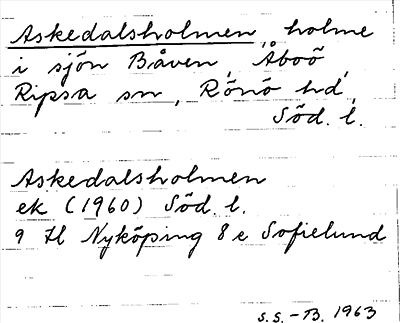 Askedalsholmen, holme
i sjön Båven, Åboö,
Ripsa sn, Rönö hd,
Söd. l.
Askedalsholmen
ek (1960) Söd. l.
9 H Nyköping 8 e Sofielund
S.S. - B. 1963